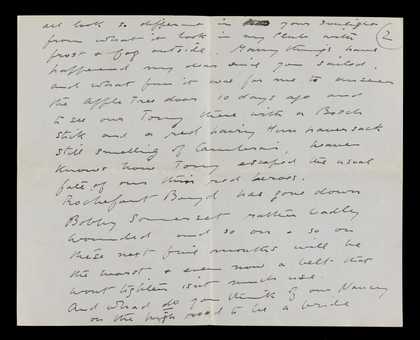 all look so different in your sunlight
from what it look in my Club with
frost & fog outside. Many things have
happened my dear since you sailed,
and what fun it was for me to answer
the apple tree door 10 days ago and
to see our Tony there with a Bosch
stick and a red hairy Hun haversack
still smelling of Cambrai, heaven
knows how Tony escaped the usual
fate of our red heroes.
Rochefort Boyd has gone down
Bobby Somerset rather badly
wounded and so on & so on
these next five months will be
the worst, & even now a belt that
wont tighten isnt much use.
And what do you think of our Nancy
on the high road to be a bride
2